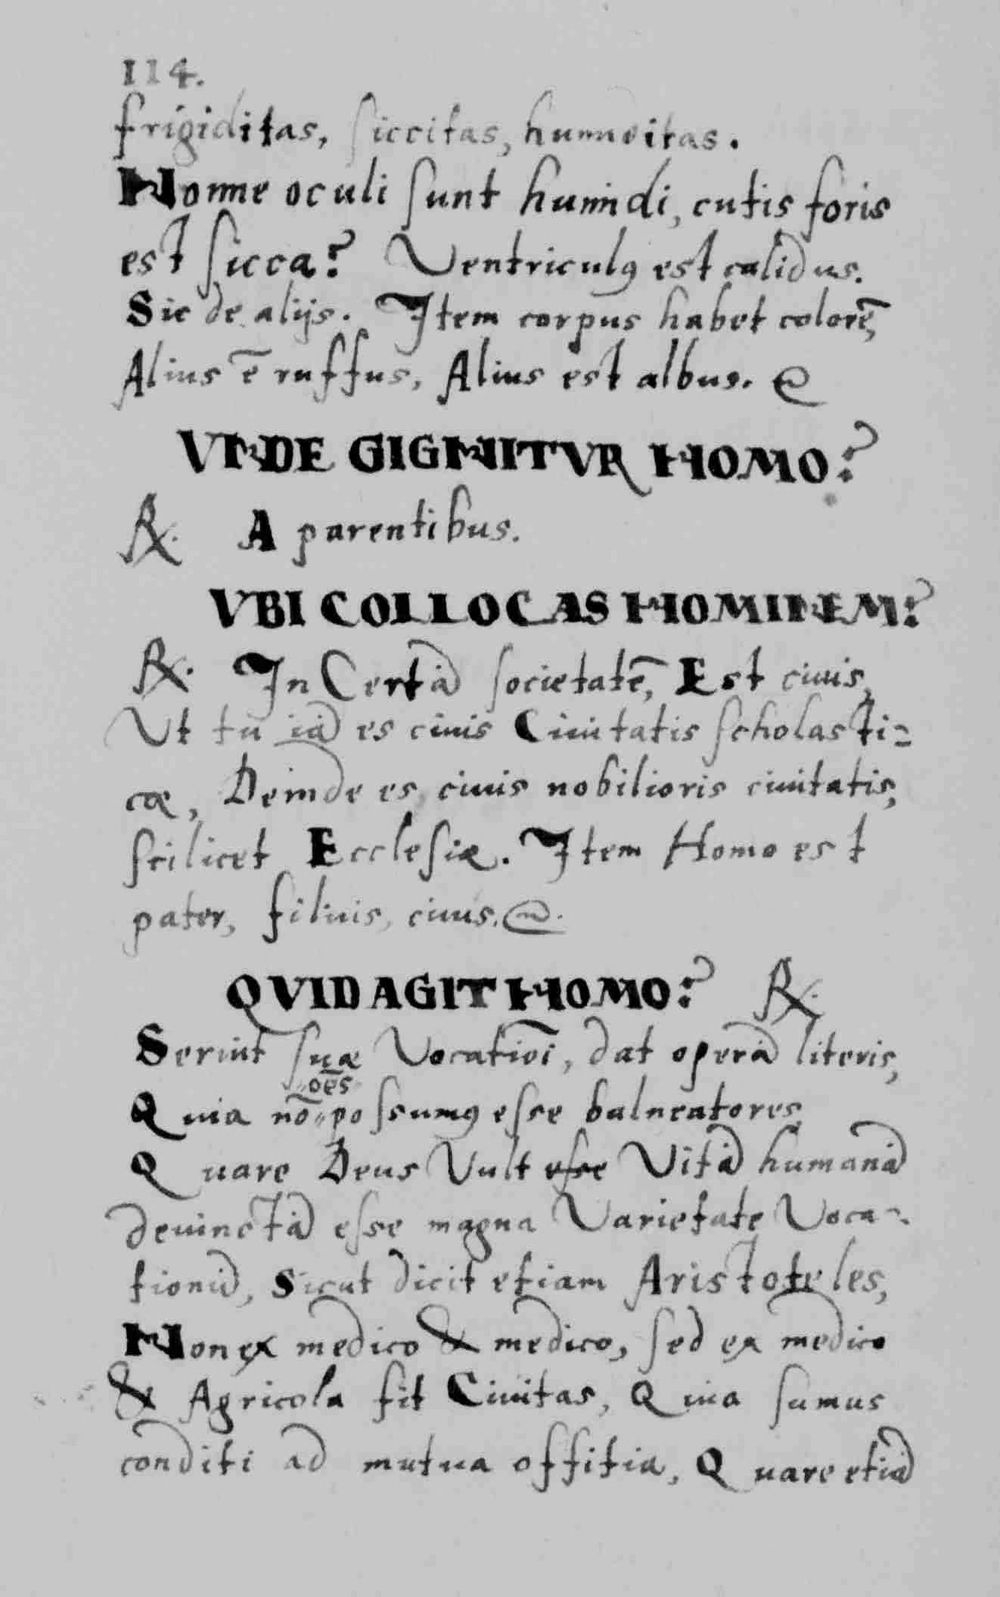 114.
frigiditas, siccitas, humiditas.
Nonne oculi sunt humidi, cutis foris
est sicca? Ventriculꝰ est calidus.
Sic de alijs. Item corpus habet colorē,
Alius ē ruffus, Alius est albus. &
VNDE GIGNITVR HOMO?
℞. A parentibus.
VBI COLLOCAS HOMINEM?
℞. In Certā societatē, Est ciuis,
Vt tu iā es ciuis Ciuitatis scholasti=
cæ, Deinde es ciuis nobilioris ciuitatis,
scilicet Ecclesiæ. Item Homo est
pater, filius, ciuis. &.
QVID AGIT HOMO? ℞.
Seruit suæ Vocatiōi, dat operā literis,
Quia nō oēs possumꝰ esse balneatores,
Quare Deus Vult esse Vitā humanā
deuinctā esse magna Varietate Voca-
tionū, Sicut dicit etiam Aristoteles,
Non ex medico & medico, sed ex medico
& Agricola fit Ciuitas, Quia sumus
conditi ad mutua offitia, Quare etiā